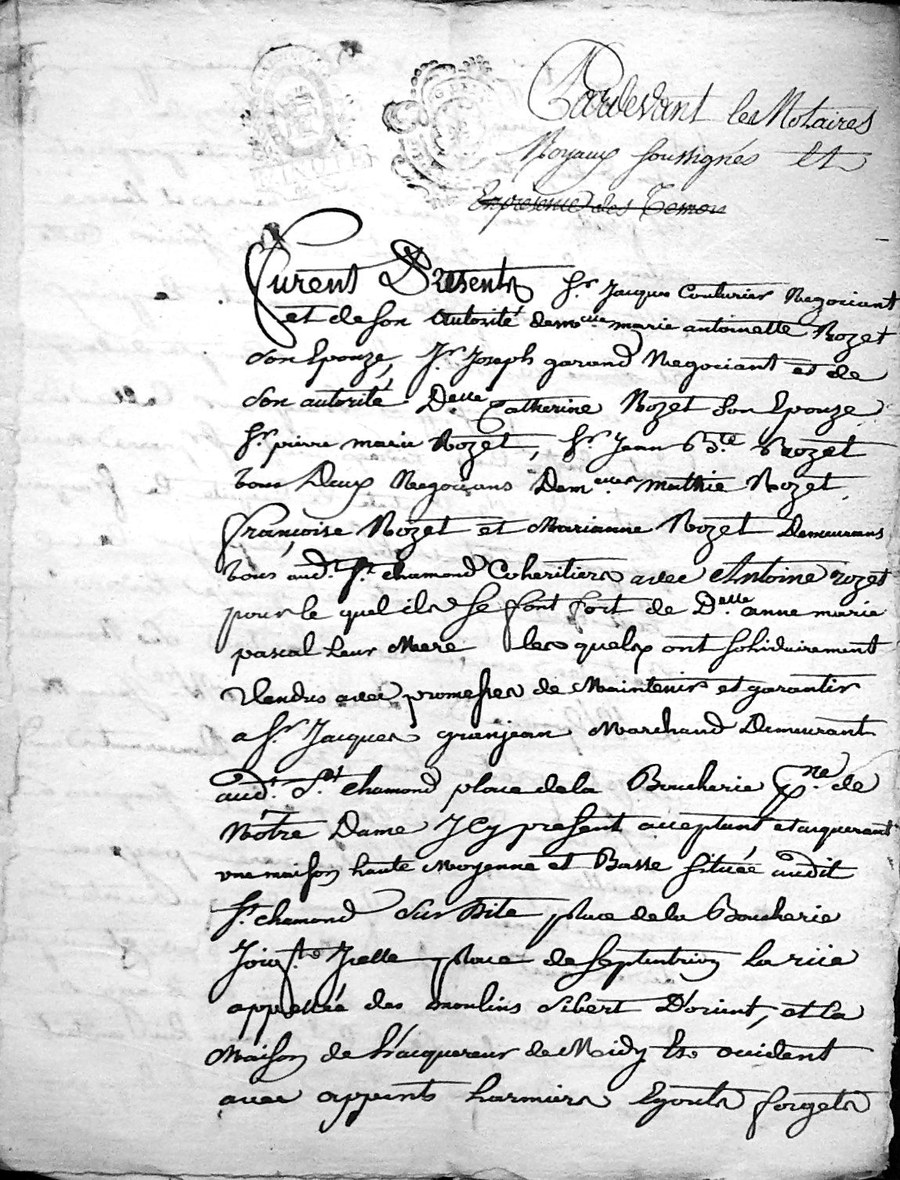 Pardevant les Notaires
Royaux soussignés et
En presence des Temoin
furent Presents Sr. Jacques Couturier Negociant
et de son autorité demoelle marie antoinette Rozet
son Epouze, Sr. Joseph garand Negociant et de
son autorité Delle Catherine Rozet son Epouze
Sr. pierre marie Rozet, Sr. Jean Bte. Rozet
tous Deux Negocians Demelles mathie Rozet,
françoise Rozet et Marianne Rozet Demeurans
tous aud. St. chamond Coheritiers avec Antoine rozet
pour le quel ils se font fort de Delle. anne marie
pascal leur Mere les quels ont solidairement
Vendus avec promesses de Maintenir et garantir
a Sr. Jacques granjean Marchand Demeurant
aud. St. chamond place de la Boucherie psse. de
Nôtre Dame Icy present acceptant et acquerant
une maison haute Moyenne et Basse située audit
St. chamond sur dite place de la Boucherie
Joigte. Icelle place de septentrion la rüe
appellée des moulins sibert D'orient, et la
Maison de L'acquereur de Midy et occident
avec appents Larmiers Egouts forgets